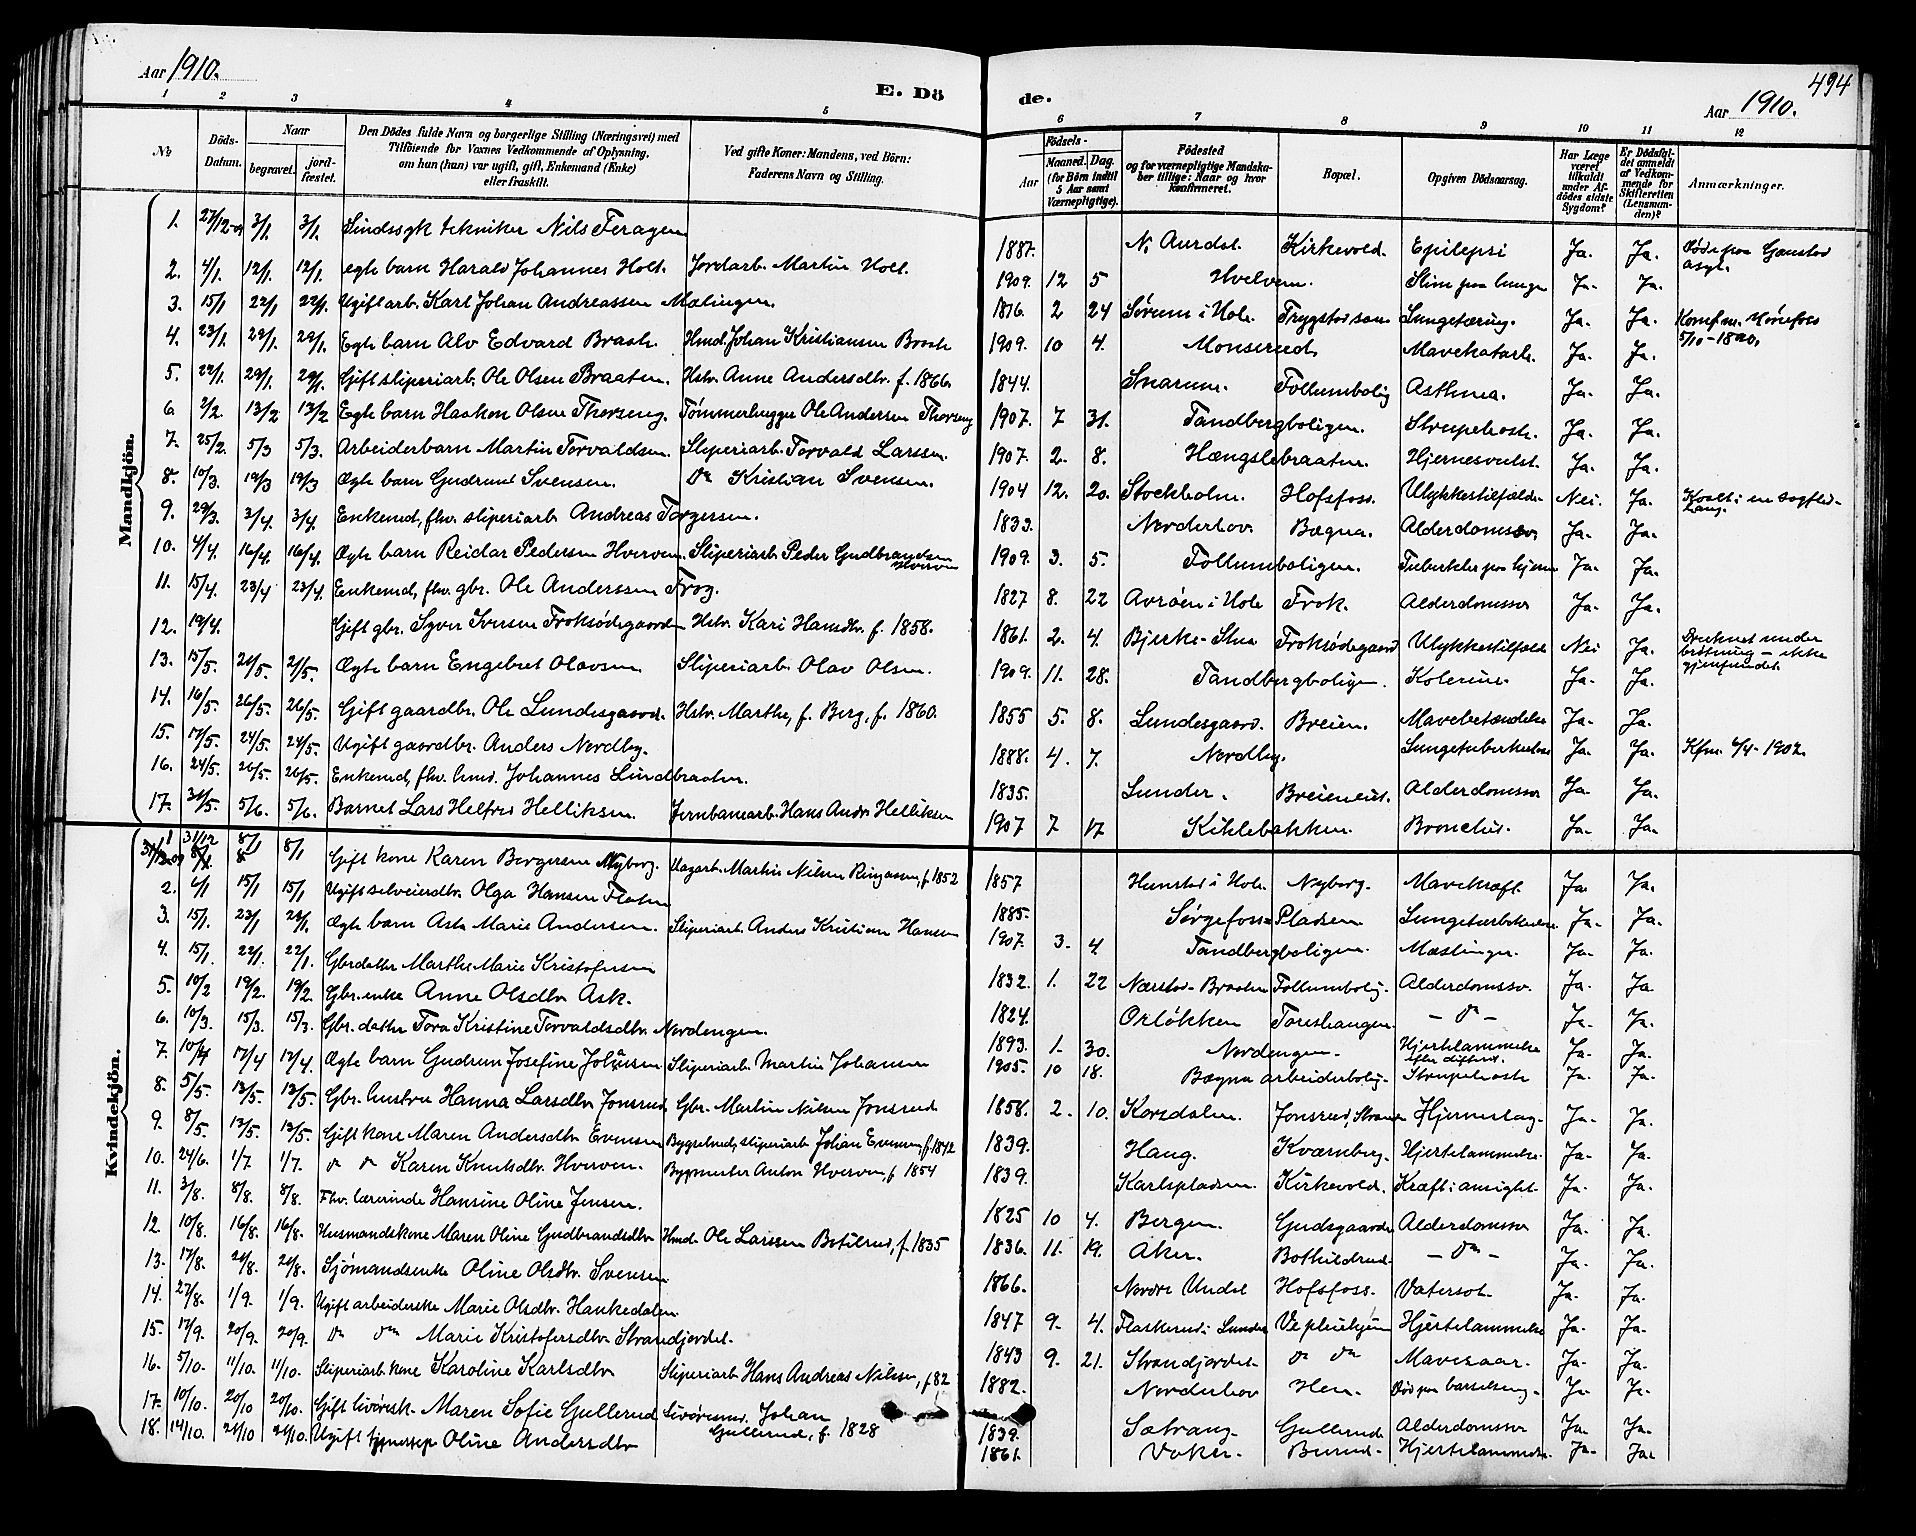 Aar 1910.
E. Dö
de.
494
Aar 1910.
1 2 3 4 5 6 7 8 9 10 11 12
No
Döds-Datum.
Naar
begravet.
jord-fæstet.
Den Dödes fulde Navn og borgerlige Stilling (Næringsvei) med
Tilföiende for Voxnes Vedkommende af Oplysning,
om hun (han) var ugift, gift, Enkemand (Enke)
eller fraskilt.
Ved gifte Koner: Mandens, ved Börn:
Faderens Navn og Stilling.
Födsels-
Aar
Maaned. Dag.
(for Börn indtil
5 Aar samt
Værnepligtige).
Födested
og for værnepligtige Mandska-
ber tillige: Naar og hvor
Konfirmeret.
Bopæl.
Opgiven Dödsaarsag.
Har Læge
været
tilkaldt
under Af-
dödes sidste
Sygdom?
Er Dödsfal-
det anmeldt
af Vedkom-
mende for
Skifteretten
(Lensman-
den)?
Anmærkninger.
Mandkjön.
1. 27/12-09 3/1. 3/1. Sindssyk tekniker Nils Feragen 1887. N. Aurdal. Kirkevold. Epilepsi Ja. Ja. Døde paa Gaustad asyl.
2. 4/1. 12/1. 12/1. egte barn Harald Johannes Holt. Jordarb. Martin Holt. 1909. 12 5 Hvelven. Slim paa lunger Ja. Ja.
3. 15/1 22/1 22/1. Ugift arb. Karl Johan Andreassen Mælingen. 1876. 2 24 Sørum i Hole. Trygstad Lungetæring. Ja. Ja. Konf. m. Hønefos
4. 23/1. 29/1. 29/1. Egte barn Alv Edvard Brask Hmd. Johan Kristiansen Brask 1909. 10 4. Monserud. Mavekatarh. Ja. Ja.
5. 22/1. 29/1. 29/1. Gift sliperiarb. Ole Olsen Braaten. Hstr. Anne Andersdtr. f. 1866. 1844. Snarum. Follumbolig Asthma. Ja. Ja.
6. 2/2. 13/2 13/2 Egte barn Haakon Olsen Thorseng. Tømmerhugger Ole Andersen Thorseng 1907. 7 31. Tandbergboligen. Strupehoste. Ja. Ja.
7. 25/2. 5/3 5/3. Arbeiderbarn Martin Torvaldsen. Sliperiarb. Torvald Larssen. 1907. 2. 8. Hængslebraaten. Hjernesvulst. Ja. Ja.
8. 10/3. 19/3 19/3 Ægte barn Gudrund Svensen. Do Kristian Svensen. 1904 12. 20. Stockholm. Hofsfoss. Ulykkestilfælde Nei. Ja. Kvalt i en
9. 29/3. 3/4. 3/4. Enkemd, fhv. sliperiarb Andreas Torgersen. 1833. Norderhov. Bægna. Alderdomssv Ja. Ja.
10. 4/4. 16/4. 16/4. Ægte barn Reidar Pedersen Hverven. Sliperiarb. Peder Gudbrandsen Hverven 1909. 3. 5. Follumboligen. Tuberkler paa hjerne Ja. Ja.
11. 15/4. 23/4 23/4. Enkemd, fhv. gbr. Ole Anderssen Frog. 1827 8. 22 Avrøen i Hole Frok. Alderdomssv Ja. Ja.
12. 19/4. Gift gbr. Syver Iversen Froksødegaarden Hstr. Kari Hansdtr. f. 1858. 1861. 2. 4. Bjerke-Stua Froksødegaard Ulykkestilfælde Nei Ja. Druknet under fløtning - ikke gjenfundet.
13. 15/5. 21/5. 21/5. Ægte barn Engebret Olavsen Sliperiarb. Olav Olsen. 1909. 11. 28. Tandbergboligen. Kolerine. Ja. Ja.
14. 16/5. 26/5. 26/5. Gift gaardbr. Ole Lundesgaard. Hstr. Marthe, f. Berg, f. 1860. 1855 5. 8. Lundesgaard. Breien. Mavebetændelse Ja. Ja.
15. 17/5. 24/5. 24/5. Ugift gaardbr. Anders Nordby. 1888. 4. 7. Nordby. Lungetuberkulose Ja. Ja. Kfm. 6/4-1902.
16. 24/5. 26/5. 26/5. Enkemd, fhv. hmd. Johannes Lindbraaten. 1835. Lunder. Breieneie. Alderdomssv Ja. Ja.
17. 31/5. 5/6. 5/6. Barnet Lars Helfred Helliksen. Jernbanearb. Hans Andr. Helliksen 1907 7 17 Kiklebakken. Bronchit. Ja. Ja.
Kvindekjön.
1 31/12 8/1 8/1 Gift kone Karen Bergersen Nyborg. Vagarb. Martin Nilsen Ringaasen, f. 1852 1857 Hunstad i Hole. Nyborg. Mavekræft Ja. Ja.
2. 6/1 15/1 15/1. Ugift selveierdtr. Olga Hansen Flaten 1885. Sørgefoss Pladsen Lungetuberkulose Ja. Ja.
3. 15/1. 23/1 23/1. Ægte barn Asta Marie Andersen. Sliperiarb. Anders Kristian Hansen 1907. 3. 4. Tandbergboligen. Mæslinger. Ja. Ja.
4. 15/1 22/1. 22/1. Gbrdatter Marthe Marie Kristofersen 1832. 1. 22 Nærstad-Braaten Follumbolig. Alderdomssv. Ja. Ja
5. 10/2 19/2. 19/2. Gbr.enke Anne Olsdtr. Ask. 1824. Orløkken Toreshaugen - Do - Ja. Ja.
6. 10/3. 15/3. 15/3. Gbr. datter Tora Kristine Torvaldsdtr. Nordengen. 1893. 1. 30. Nordengen. Hjertelammelse efter difterit. Ja. Ja.
7. 10/4 17/4 17/4. Ægte barn Gudrun Josefine Johansen Sliperiarb. Martin Johansen 1905. 10 18. Bægna arbeiderbolig. Strupehoste Ja. Ja.
8. 5/5. 13/5. 13/5. Gbr. hustru Hanna Larsdtr. Jonsrud, Gbr. Martin Nilsen Jonsrud 1858. 2. 10. Korsdalen. Jonsrud, Stranden Hjerneslag. Ja. Ja.
9. 8/5. 13/5. 13/5. Gift kone Maren Andersdtr Evensen Bygselmd, sliperiarb Johan Evensen, f. 1842 1839. Haug. Kværnberg. Hjertelammelse. Ja. Ja.
10. 24/6. 1/7. 1/7. Do Do Karen Knutsdtr. Hverven. Bygmester Anton Hverven, f 1854 1839. Karlspladsen. Kirkevold. Kræft i ansigt. Ja. Ja.
11. 3/8. 8/8. 8/8. Fhv. lærerinde Hansine Oline Jensen. 1825 10 4. Bergen. Gudsgaarden Alderdomssv Ja. Ja.
12. 10/8. 16/8. 16/8. Husmandskone Maren Oline Gudbrandsdtr. Hmd. Ole Larssen Botilrud, f. 1835 1836. 11. 19. Aker. Bothildrud. - Do - Ja. Ja.
13. 17/8. 20/8. 20/8. Sjømandsenke Oline Olsdtr. Svensen 1866. Nordre Undal Hofsfoss. Vatersot. Ja. Ja.
14. 27/8. 1/9. 1/9. Ugift arbeiderske Marie Olsdtr. Haukedalen 1847 9. 4. Flaskerud i Lunder Ve pleiehjem Hjertelammelse Ja. Ja.
15. 17/9. 20/9. 20/9. Do Do Marie Kristofersdtr. Strandjordet. 1843 9. 21. Strandjordet. Do Do Mavesaar. Ja. Ja.
16. 5/10. 11/10. 11/10. Sliperiarb. kone Karoline Karlsdtr Sliperiarb Hans Andreas Nilsen, f. 82 1882. Norderhov Hen. Død paa barselseng. Ja. Ja.
17. 10/10. 20/10 20/10. Gift livøresk. Maren Sofie Gullerud Livøresmd. Johan Gullerud, f. 1828 1839. Sætrang. Gullerud Alderdomssv Ja. Ja.
18. 14/10. 21/10 21/10. Ugift Oline Andersdtr 1861. Voker. Burud. Hjertelammelse. Ja. Ja.